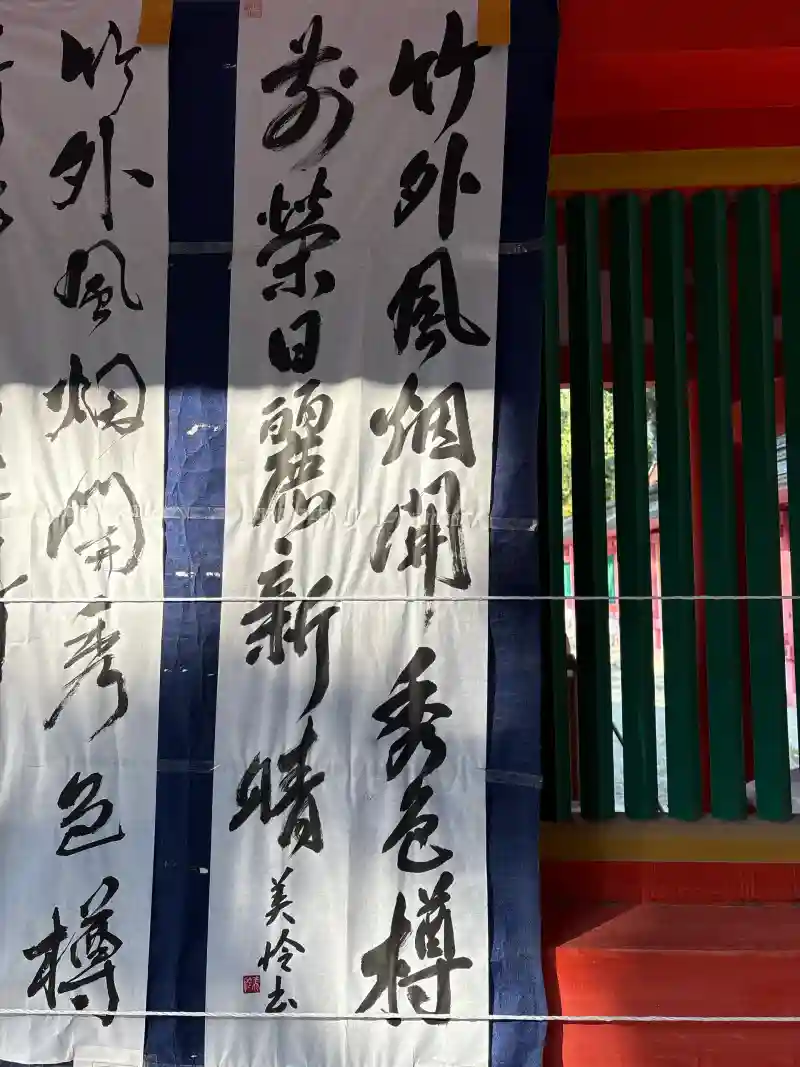 竹外風烟開秀色樽
前榮日麗新晴
美怜書
竹外風烟開秀色樽